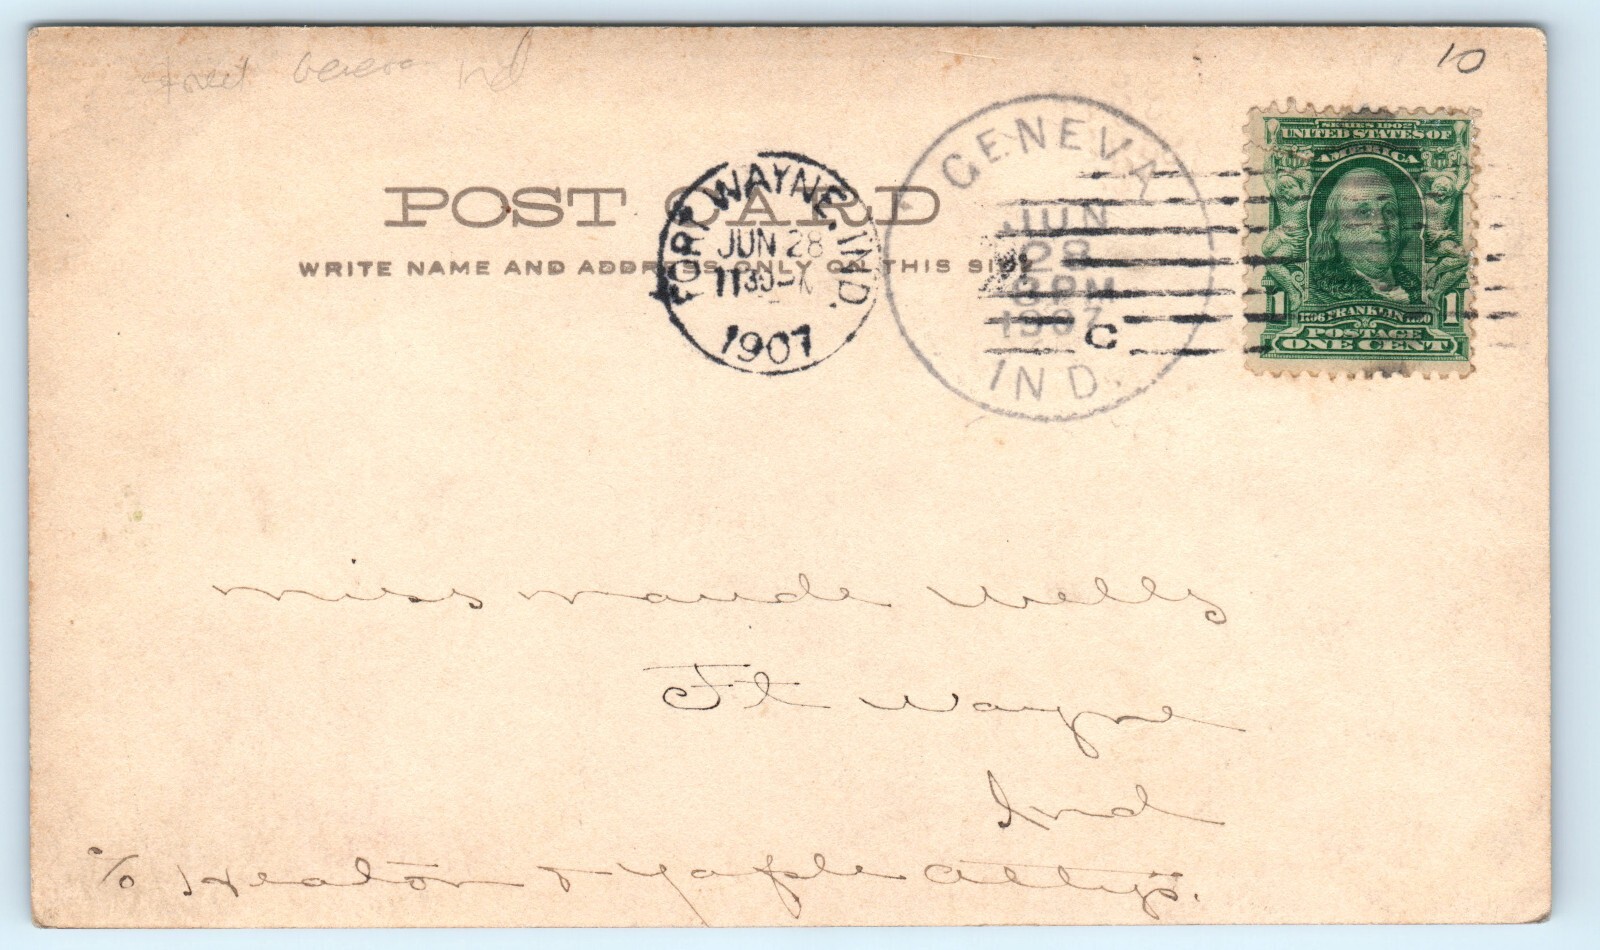 Ind
10
GENEVA
JUN
28
PM
1907
IND.
FORT WAYNE, IND.
JUN 28
1130
1907
C
SERIES 1902
UNITED STATES OF
AMERICA
1 1
1706 FRANKLIN 1790
POSTAGE
ONE CENT
POST CARD
WRITE NAME AND ADDRESS ONLY ON THIS SIDE
Miss Maude Wells
Ft Wayne
Ind
c/o Heaton & Yaple Attys.